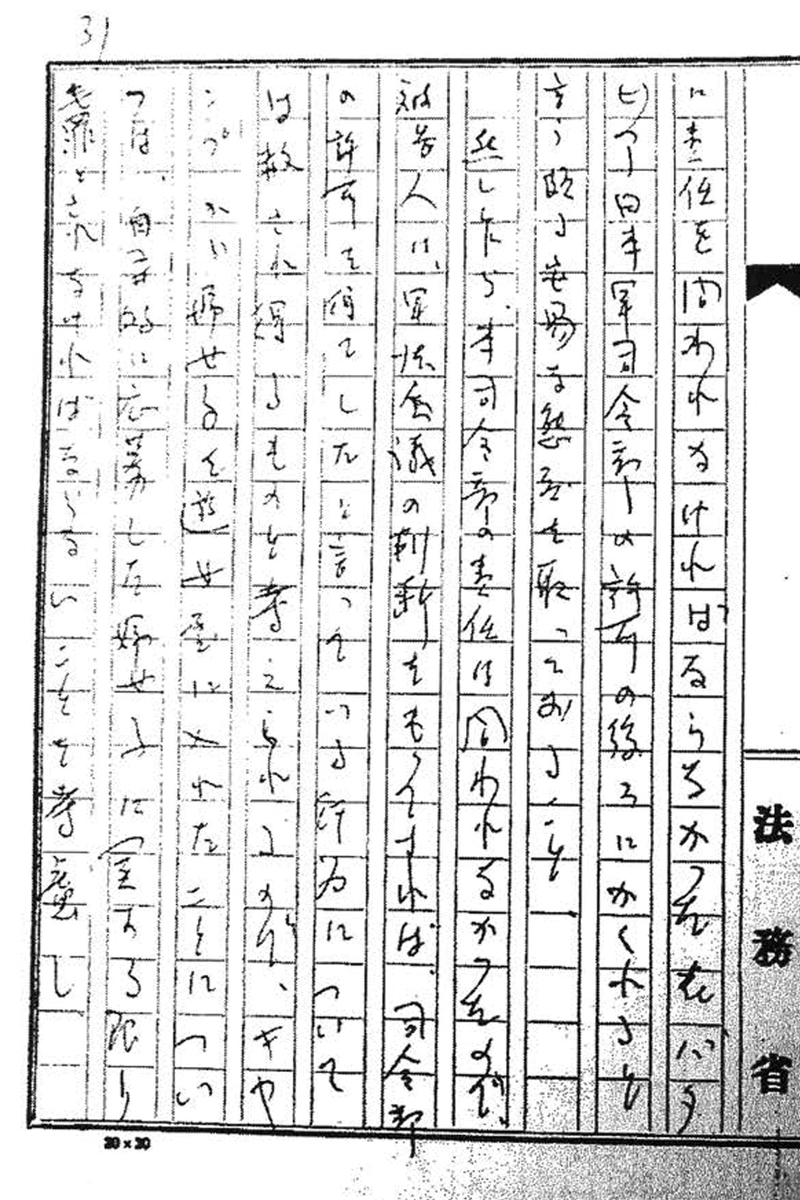 31
法務省
に責任を問われなければならなかった在バタ
ビヤ日本軍司令部の許可の後ろにかくれると
言う頗る安易な態度を取っておること、
然しながら、本司令部の責任は問われなかったので、
被告人は、軍法会議の判断をもってすれば、司令部
の許可を得てしたと言っている行為について
は赦され得るものと考えられるので、キャ
ンプから婦女子を遊女屋に入れたことについ
ては、自主的に応募した婦女子に関する限り
無罪とされなければならないことを考慮し
20×20